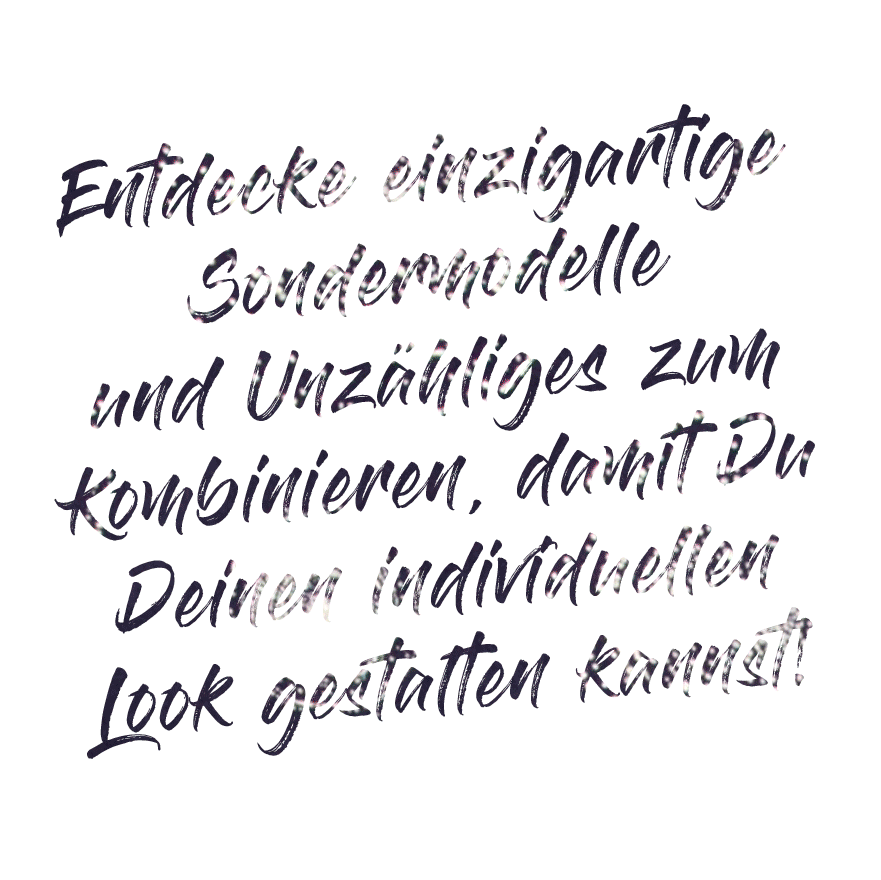 Entdecke einzigartige
Sondermodelle
und Unzähliges zum
Kombinieren, damit Du
Deinen individuellen
Look gestalten kannst!